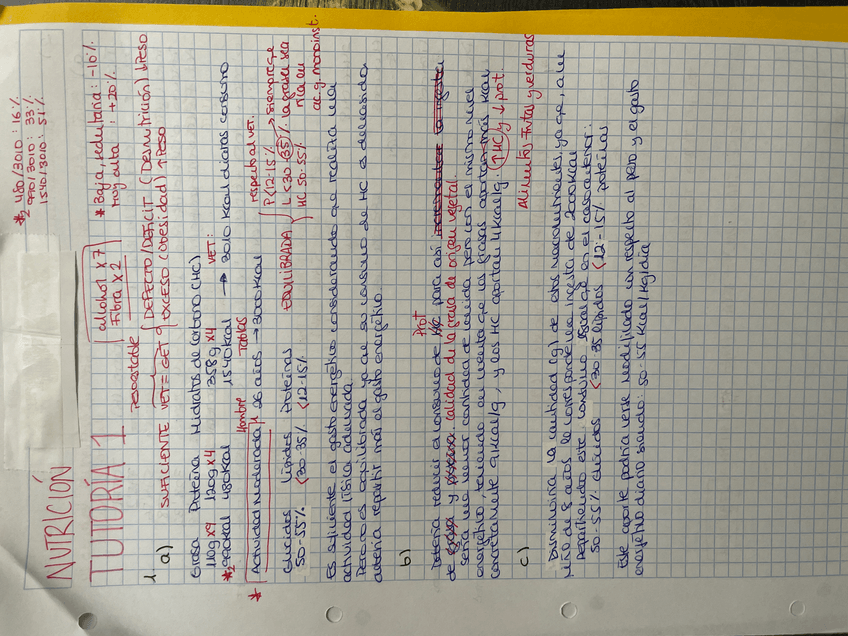 NUTRICIÓN
*₂ 480/3010: 16%
990/3010: 33%
1540/3010: 51%
TUTORÍA 1
alcohol x7
Fibra x2
* Baja, sedentaria: -10%
Muy alta: +20%
Peso estable
1. a) SUFICIENTE VET = GET
DEFECTO/DEFICIT (Desnutrición) ↓Peso
EXCESO (Obesidad) ↑Peso
Grasa Proteína Hidratos de carbono (HC)
110g x9 120g x4 358g x4 VET:
*₂ 990kcal 480kcal 1540kcal → 3010 kcal diarias consumo
Hombre Tablas
* Actividad Moderada 26 años → 3000 kcal
respecto al VET.
Glúcidos Lípidos Proteínas EQUILIBRADA
50-55% <30-35% <12-15%
P <12-15%
L <30 (35)% → siempre que la grasa sea rica en ac. g. monoinst.
HC 50-55%
Es suficiente el gasto energético considerando que realiza una
actividad física adecuada.
Pero no es equilibrada ya que su consumo de HC es demasiado
debería repartir más el gasto energético
b) Debería reducir el consumo de Prot para así
de grasa y calidad de la grasa de origen vegetal.
sería una menor cantidad de comida pero con el mismo nivel
energético, teniendo en cuenta que las grasas aportan más kcal
concretamente 9kcal/g, y los HC aportan 4kcal/g. (↑HC) y ↓prot.
Alimentos: Frutas y verduras
c) Disminuiría la cantidad (g) de estos macronutrientes, ya que, a un
niño de 8 años le corresponde una ingesta de 2000kcal
Repartiendo este consumo igual que en el caso anterior:
50-55% glúcidos <30-35 lípidos <12-15% proteínas
Este aporte podría verse modificado con respecto al peso y el gasto
energético diario siendo: 50-55 kcal/kg/día